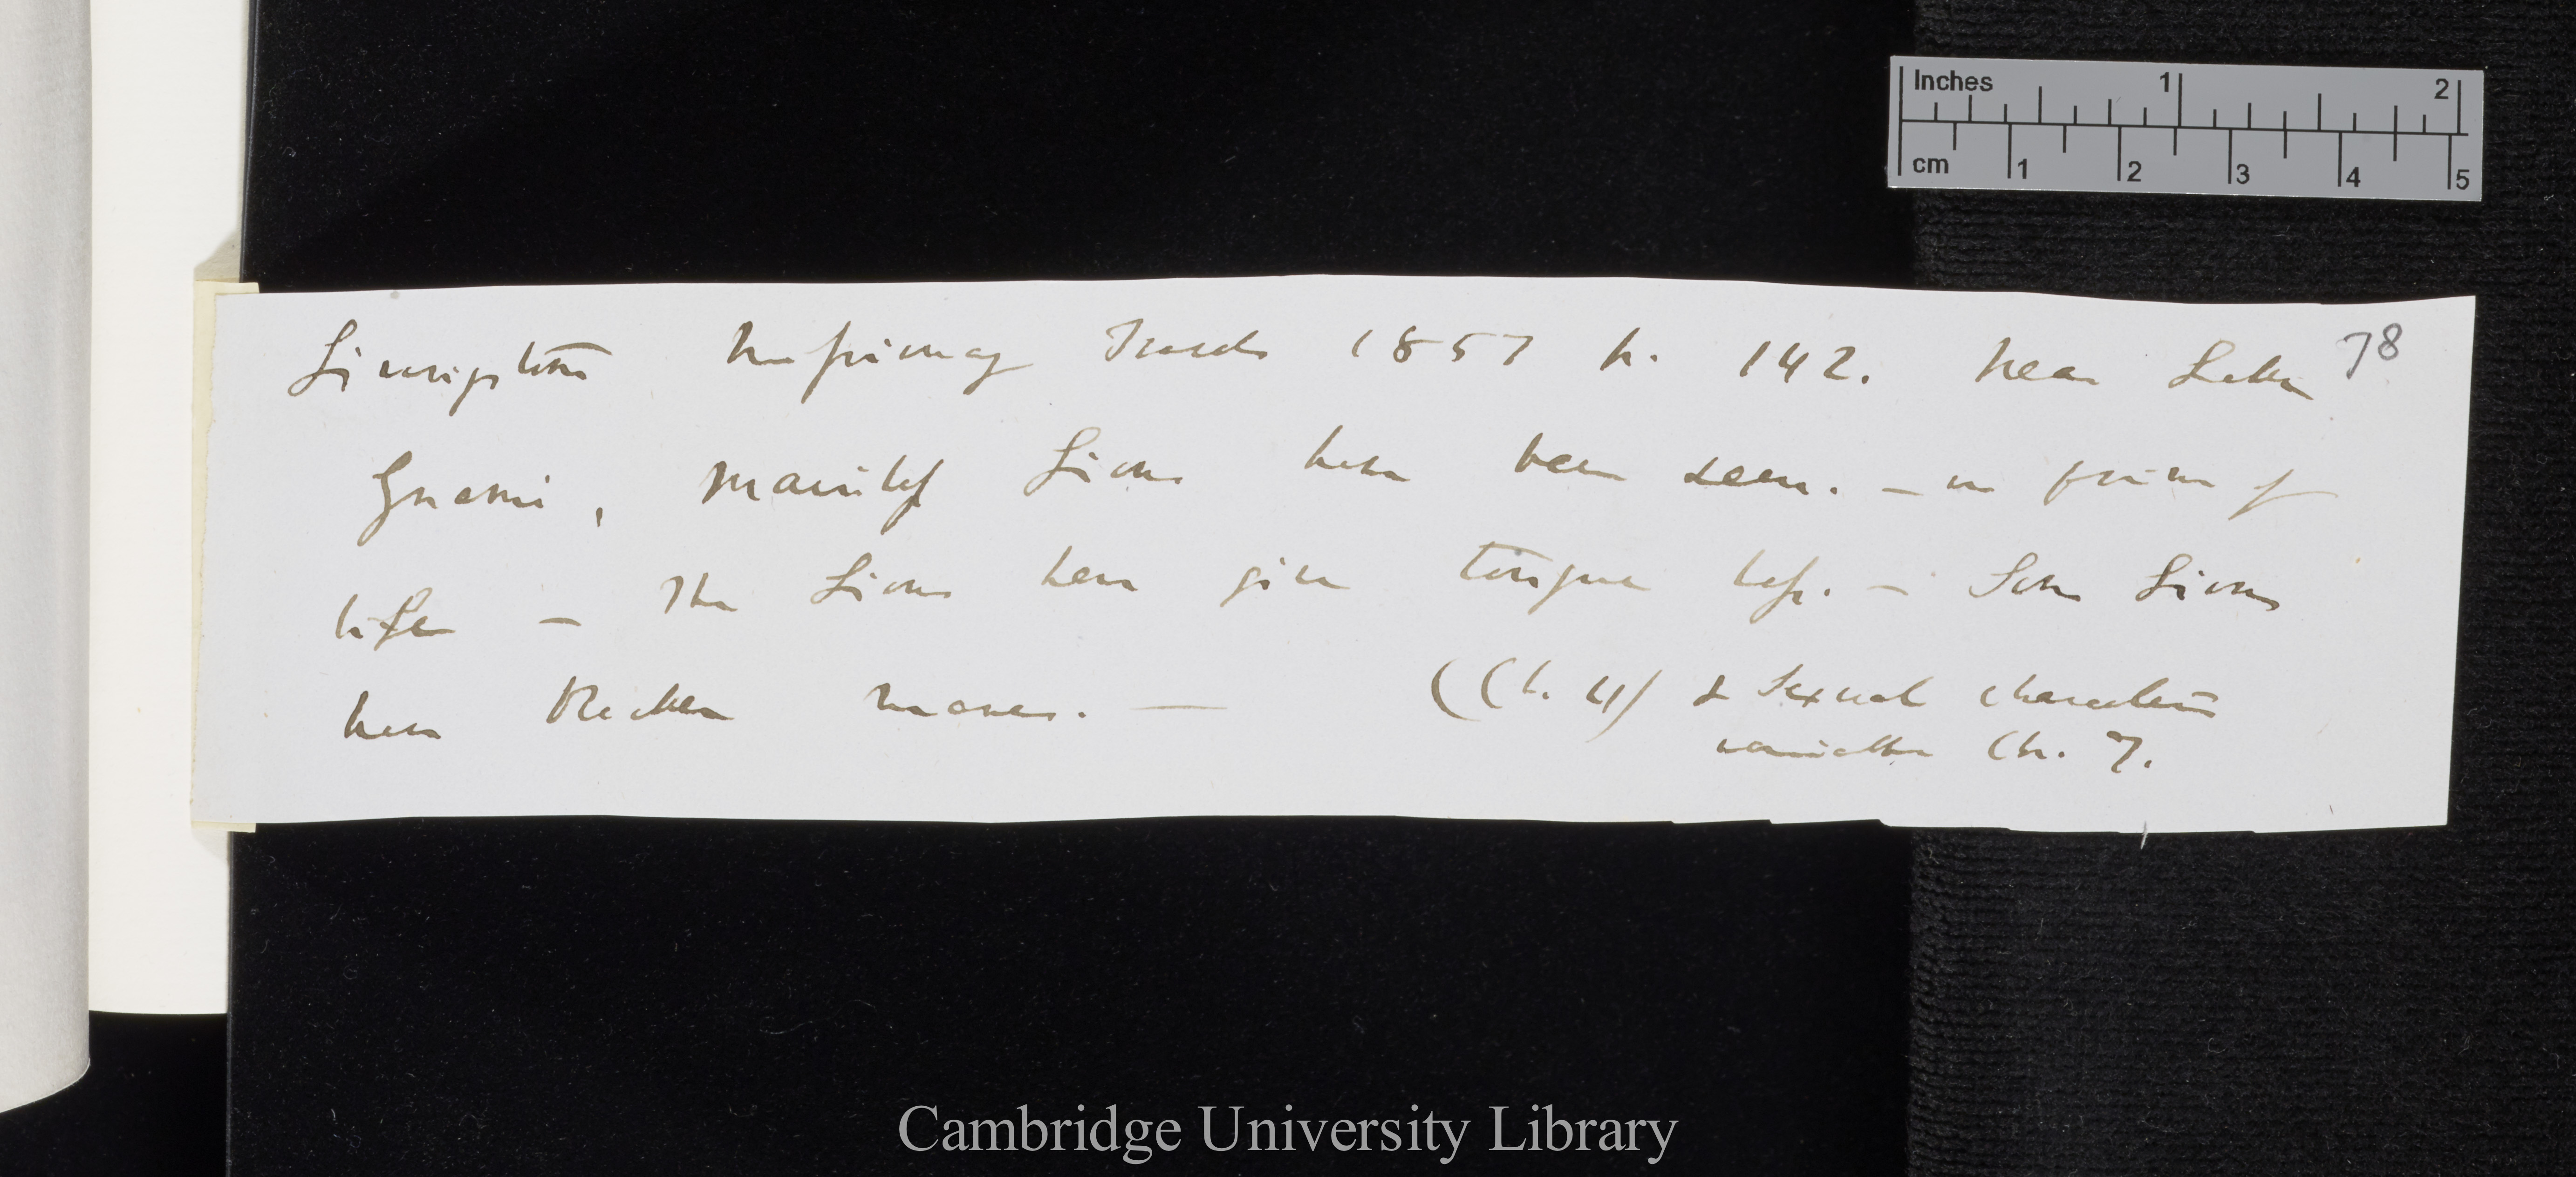 Livingstone Missionary Travels 1857 p. 142. Near Lake 78
Ngami, maneless Lions have been seen. — in prime of
life — The Lions here give tongue less. — Some Lions
have thicker manes. — (Ch. 4) & Sexual characters
variable Ch. 7.
Inches 1 2
cm 1 2 3 4 5
Cambridge University Library